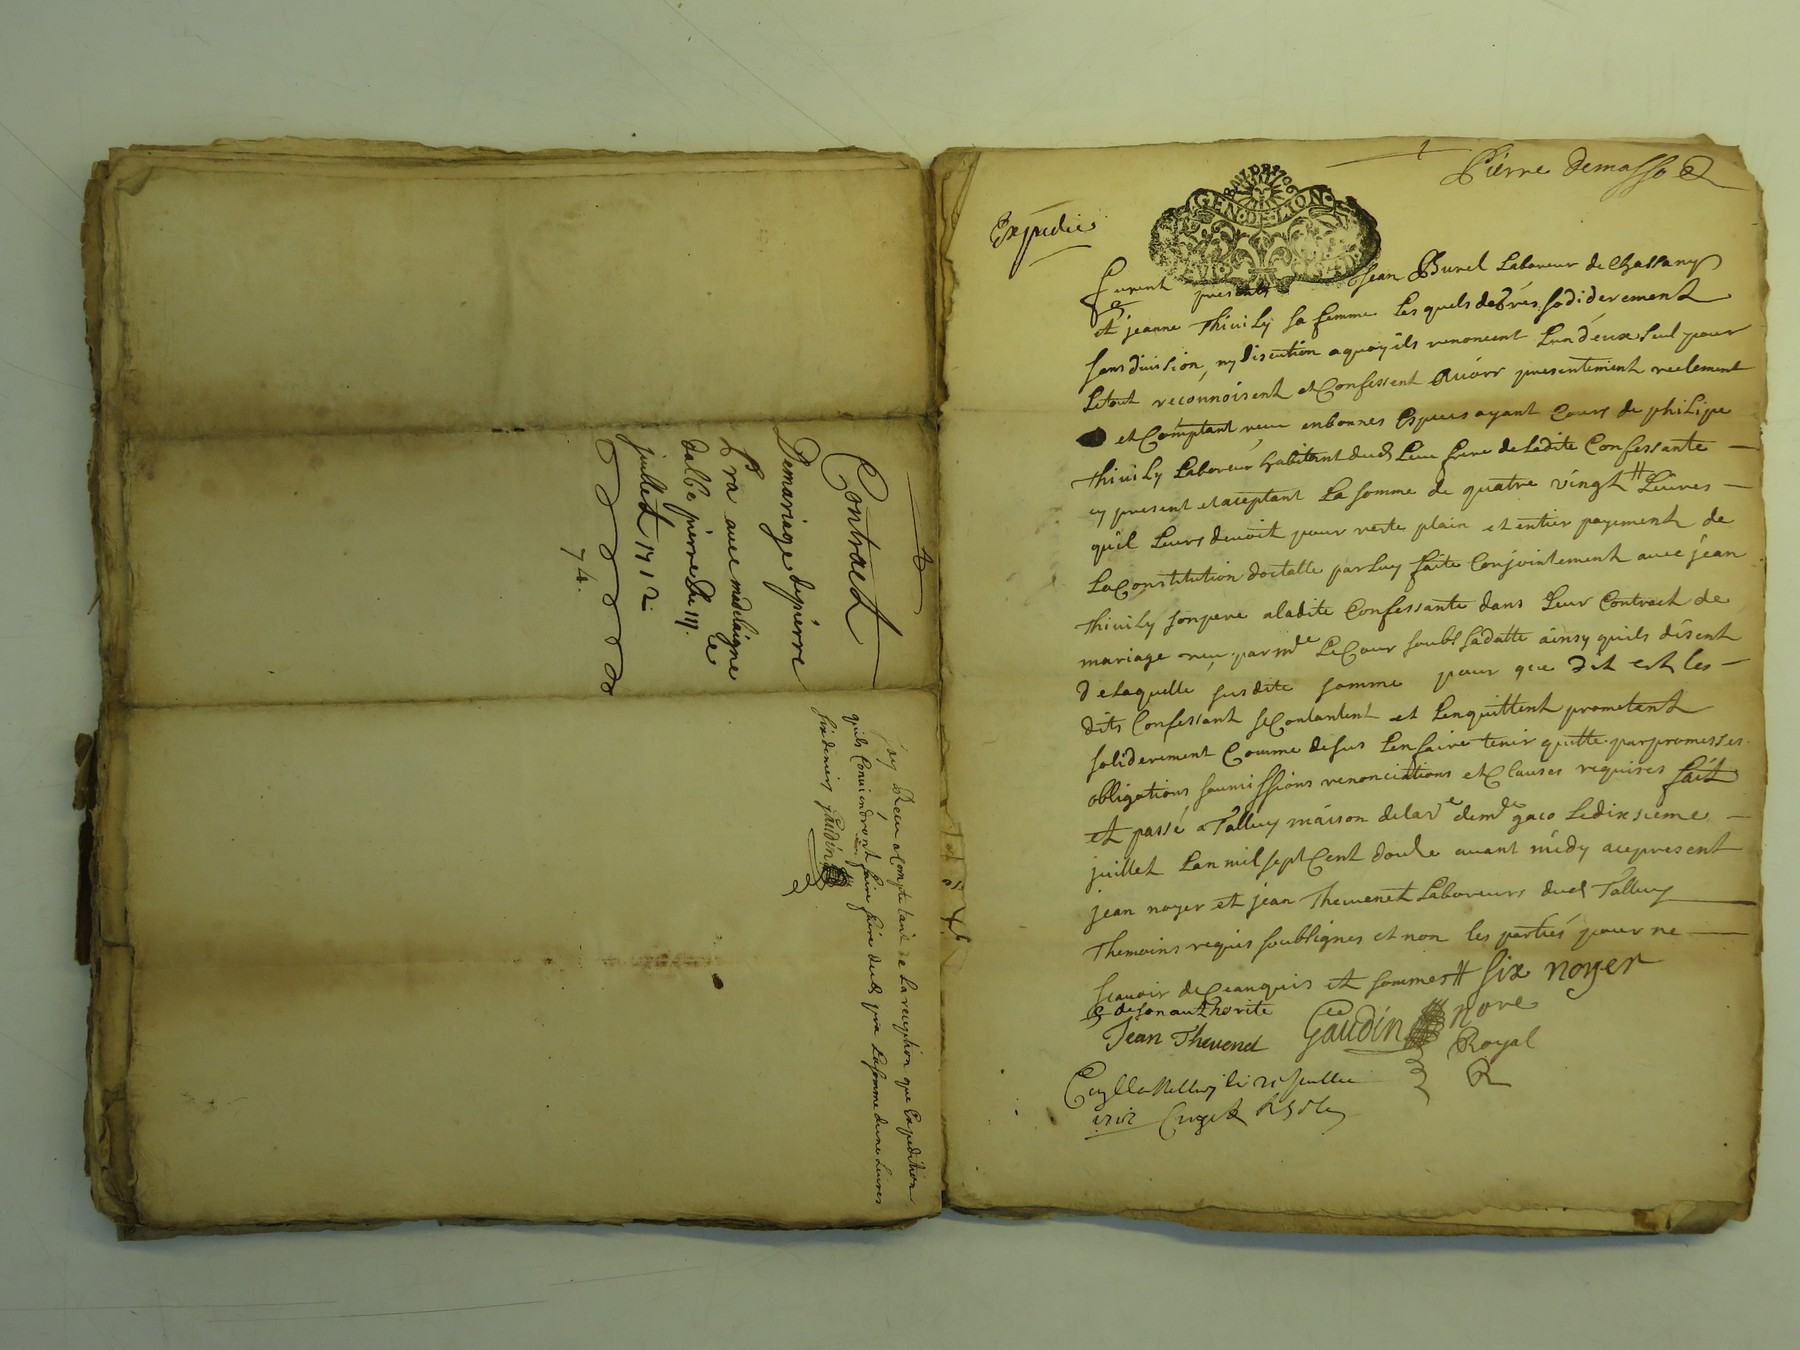 Contract
Demariage de pierre
fra avec madelaigne
dalbe pierre De
juillet 1712
74.
jay Receu a Compte tant de La reception que Expedition
quils Conviendront faire faire dud. fra La somme dune Livres
six deniers Gaudin
Pierre Demasso
BAV.DE 1706
GEN.DE LION
Expedié
Furent presents Jean Burel Laboreur de Chassany
et jeanne Thivily sa femme Les quels de Grés sodiderement
sans division, ny discution a quoy ils renoncent Lun deux seul pour
Letout reconnoisent et Confessent Avoir presentement reelement
et Comptant receu en bonnes Especes ayant Cours de philipe
Thivily Laboreur habitant dud Lieu frere de Ladite Confessante
cy present et aceptant La somme de quatre vingt Livres
quil Leurs devoit pour reste plain et entier payement de
La Constitution doctalle par Luy faite Conjointement avec jean
Thivily son pere a ladite Confessante dans Leur Contract de
mariage receu par Me LeCour soubs sa datte ainsy quils disent
de Laquelle susdite somme pour que dit est les
dits Confessant se Contantent et Lenquittent prometant
soliderement Comme desus Len faire tenir quitte par promesses
obligations soumissions renonciations et Clauses requises fait
et passé a Talluy maison de la ve de Me gaco Le dix sieme
juillet Lan mil sept Cent douze avant midy ace present
jean noyer et jean Thevenet Laboreurs dud Talluy
Themoins requis soubsignes et non les parties pour ne
scavoir de Ce anquis et sommes six noyer
de son authorite
Jean Thevenet Gaudin nore
Royal
1712